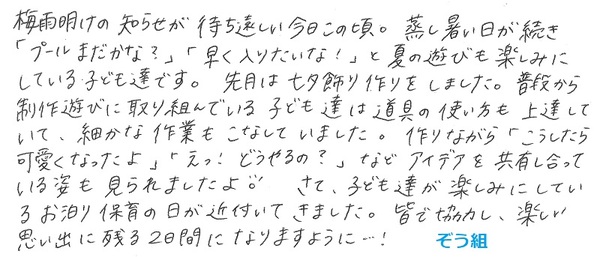 梅雨明けの知らせが待ち遠しい今日この頃。蒸し暑い日が続き
「プールまだかな？」「早く入りたいな！」と夏の遊びも楽しみに
している子ども達です。先月は七夕飾り作りをしました。普段から
制作遊びに取り組んでいる子ども達は道具の使い方も上達して
いて、細かな作業もこなしていました。作りながら「こうしたら
可愛くなったよ」「えっ！どうやるの？」などアイデアを共有し合って
いる姿も見られましたよ。さて、子ども達が楽しみにしてい
るお泊り保育の日が近付いてきました。皆で協力し、楽しい
思い出に残る2日間になりますように…！ ぞう組